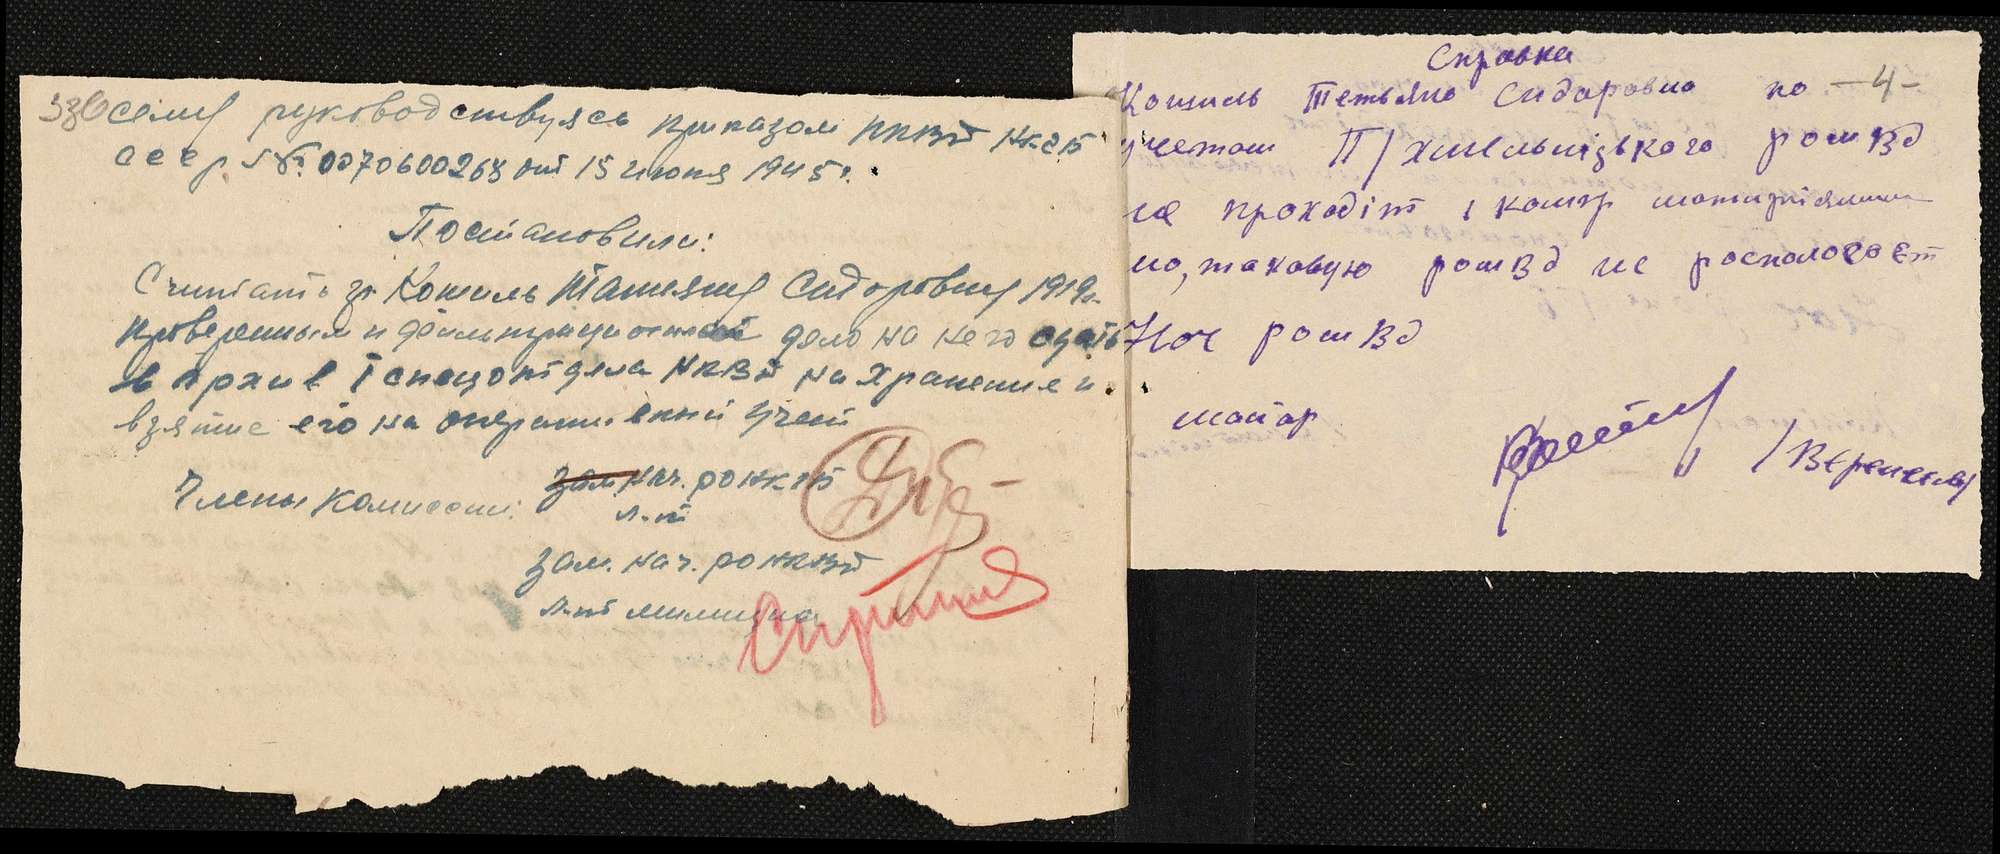 336
сему руководствуясь приказом НКВД НКГБ
СССР № 00706 00268 от 15 июня 1945 г.
Постановили:
Считать гр. Кошиль Татяну Сидоровну 1919г.
проверенным и фильтрационное дело на него сдать
в архив 1 спецотдела НКВД на хранение и
взятие его на оперативный учет
Члены комиссии: зам. нач. РО НКГБ
л-т
зам. нач. РО НКВД
л-т милиции
Справка
-4-
Кошиль Тетьяна Сидаровна по
учетам П/Хмельніцького РОМВД
не проходіт і комр матиріялами
на таковую РОМВД не роспологоєт
Нач РОМВД
маиор